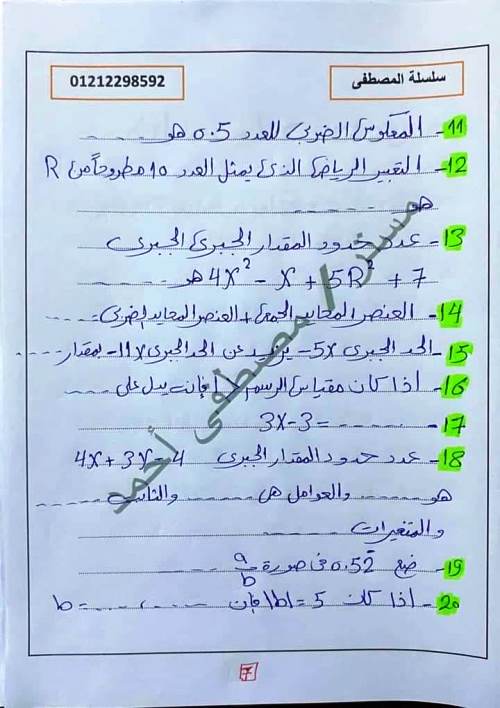 سلسلة المصطفى
01212298592
11- المعكوس الضربى للعدد 0.5 هو ------
12- التعبير الرياضى الذى يمثل العدد 10 مطروحاً من R
هو ------
13- عدد حدود المقدار الجبرى الجبرى
4x² - x + 5R² + 7 هو ------
14- العنصر المحايد الجمعى + العنصر المحايد الضربى = ------
15- الحد الجبرى 5x- يزيد عن الحد الجبرى 11x- بمقدار ------
16- اذا كان مقياس الرسم > 1 فإنه يدل على ------
17- 3x-3 = ------
18- عدد حدود المقدار الجبرى 4x+3y-4
هو ------ والعوامل هى ------ والثابت ------
والمتغيرات ------
19- ضع 0.52 فى صورة a/b ------
20- اذا كان |b| = 5 فإن b = ------ ، ------
مستر / مصطفى أحمد
7